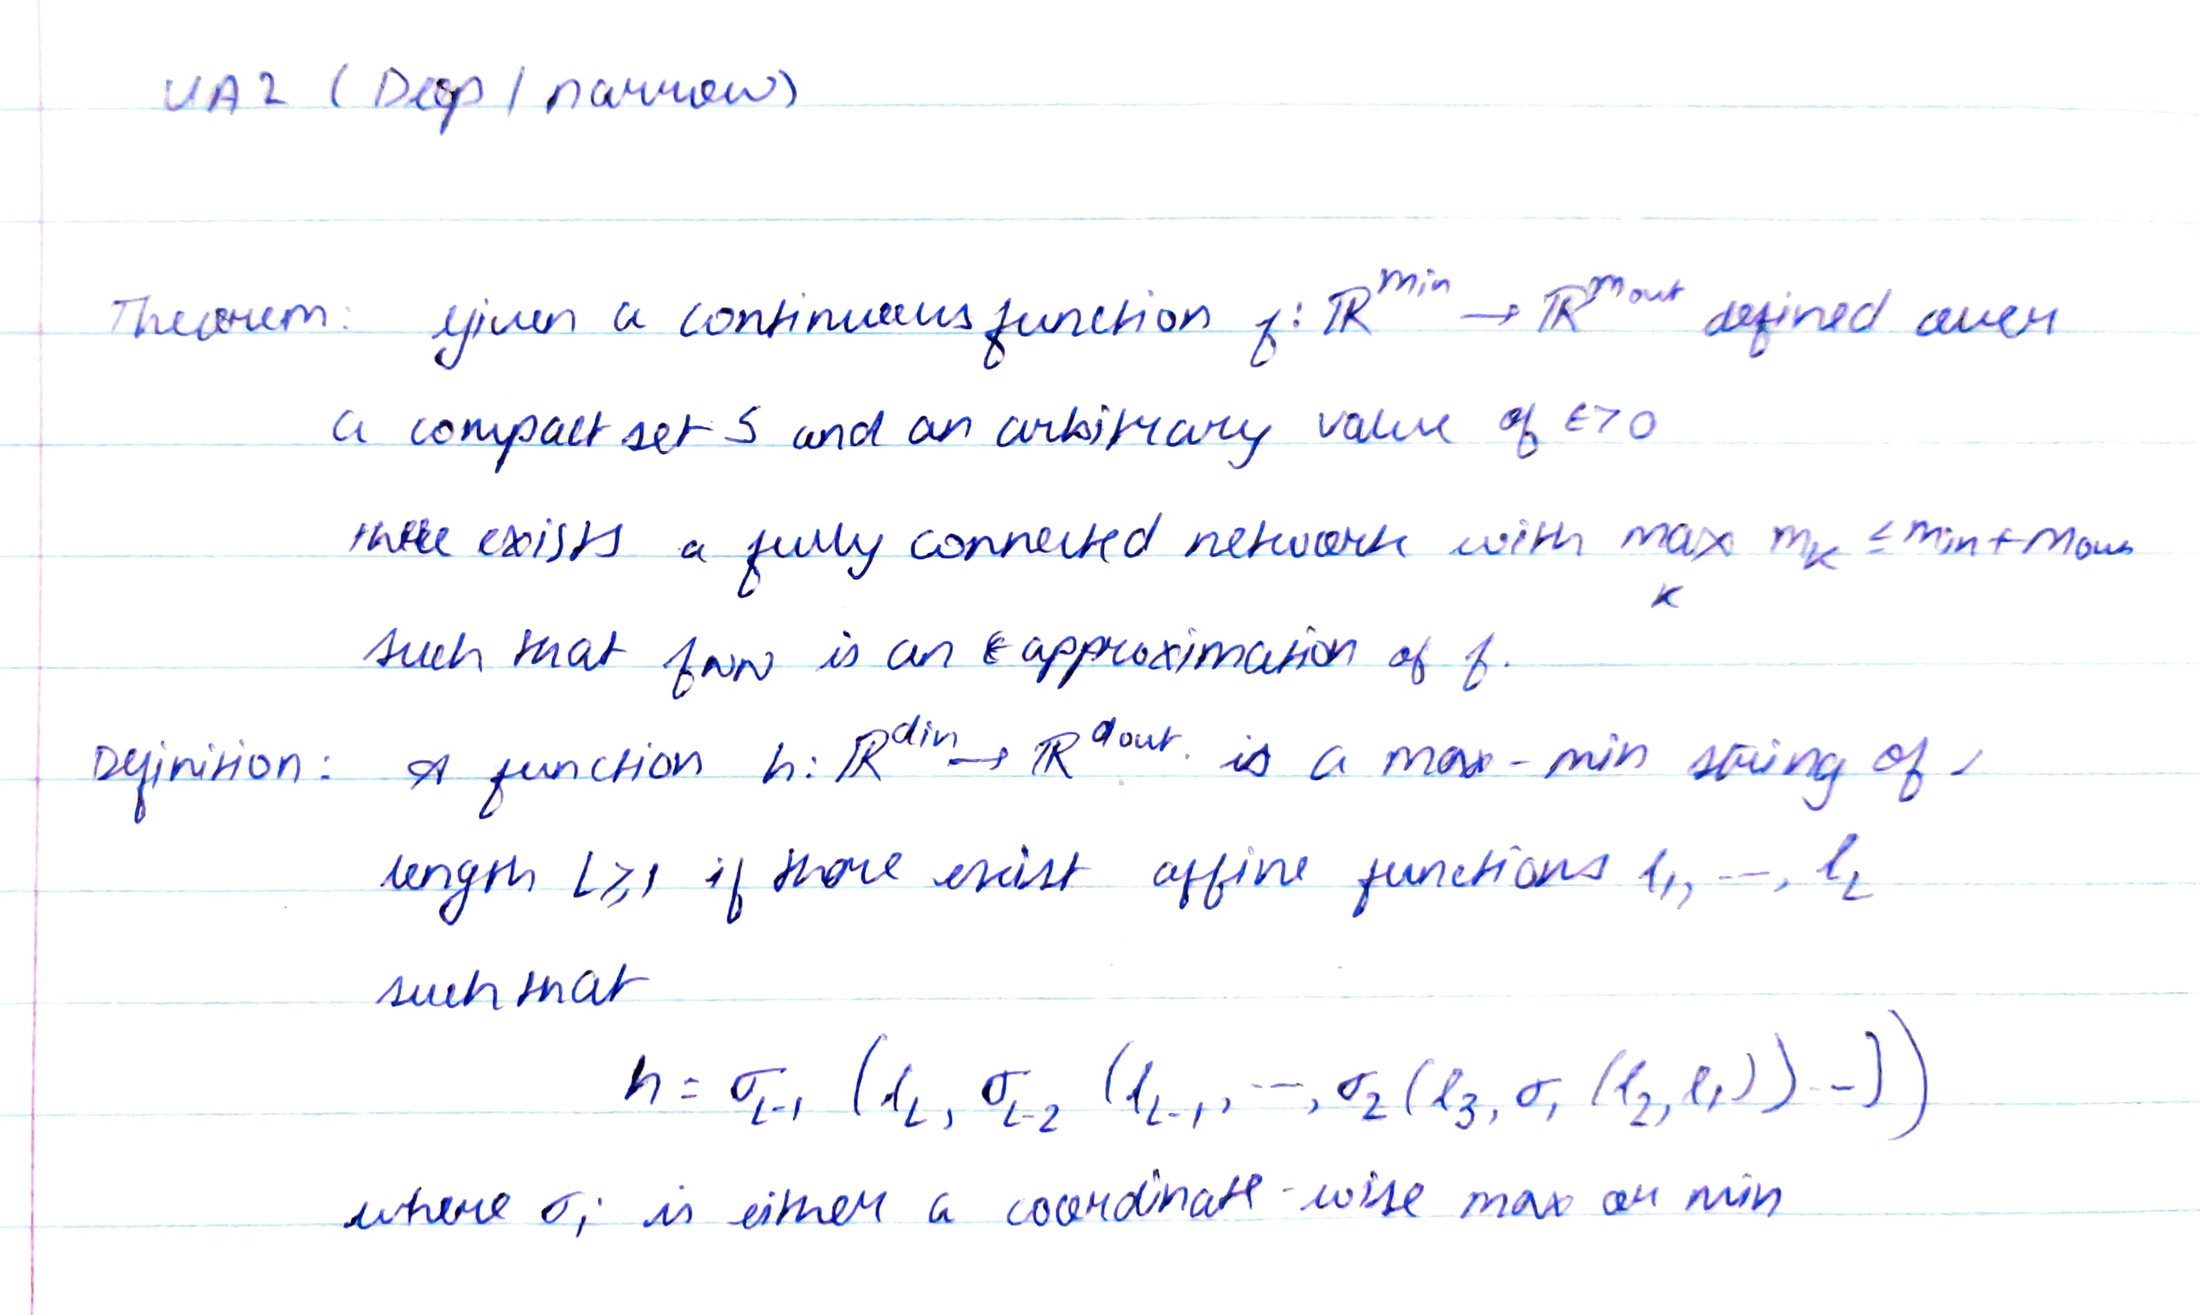 UA2 (Deep / narrow)
Theorem: given a continuous function f: ℝ^min → ℝ^mout defined over
a compact set S and an arbitrary value of ε>0
there exists a fully connected network with max_K m_K ≤ min + mout
such that f_NN is an ε approximation of f.
Definition: A function h: ℝ^din → ℝ^dout is a max-min string of
length L≥1 if there exist affine functions l_1, ---, l_L
such that
h = σ_{L-1} (l_L, σ_{L-2} (l_{L-1}, ---, σ_2 (l_3, σ_1 (l_2, l_1)) --))
where σ_i is either a coordinate-wise max or min